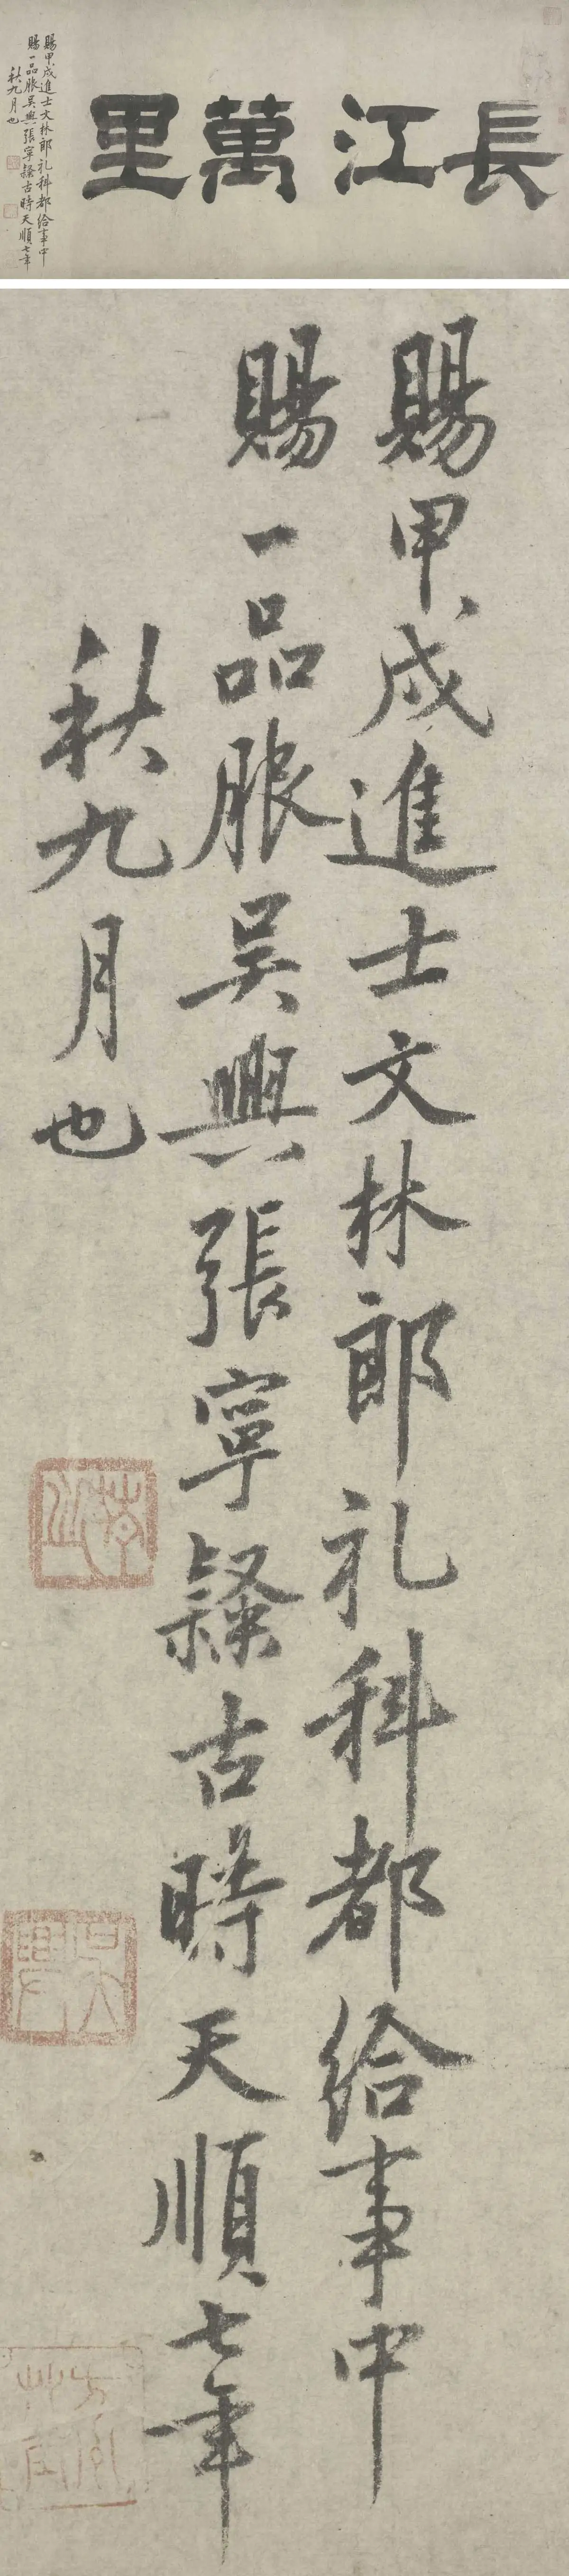 長江萬里
賜甲戌進士文林郎礼科都給事中
賜一品服吳興張寧隸古時天順七年
秋九月也
賜甲戌進士文林郎礼科都給事中
賜一品服吳興張寧隸古時天順七年
秋九月也